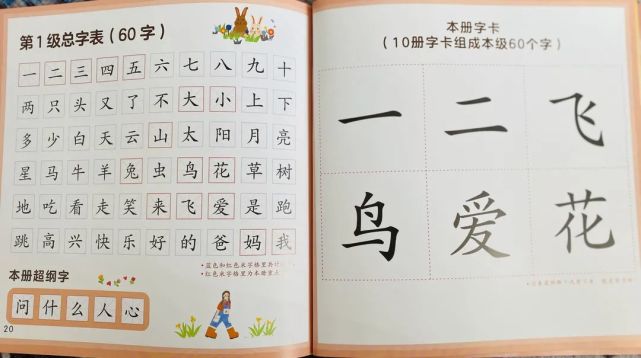 第1级总字表(60字)
一 二 三 四 五 六 七 八 九 十
两 只 头 又 了 不 大 小 上 下
多 少 白 天 云 山 太 阳 月 亮
星 马 牛 羊 兔 虫 鸟 花 草 树
地 吃 看 走 笑 来 飞 爱 是 跑
跳 高 兴 快 乐 好 的 爸 妈 我
本册超纲字
问 什 么 人 心
20
本册字卡
(10册字卡组成本级60个字)
一 二 飞
鸟 爱 花